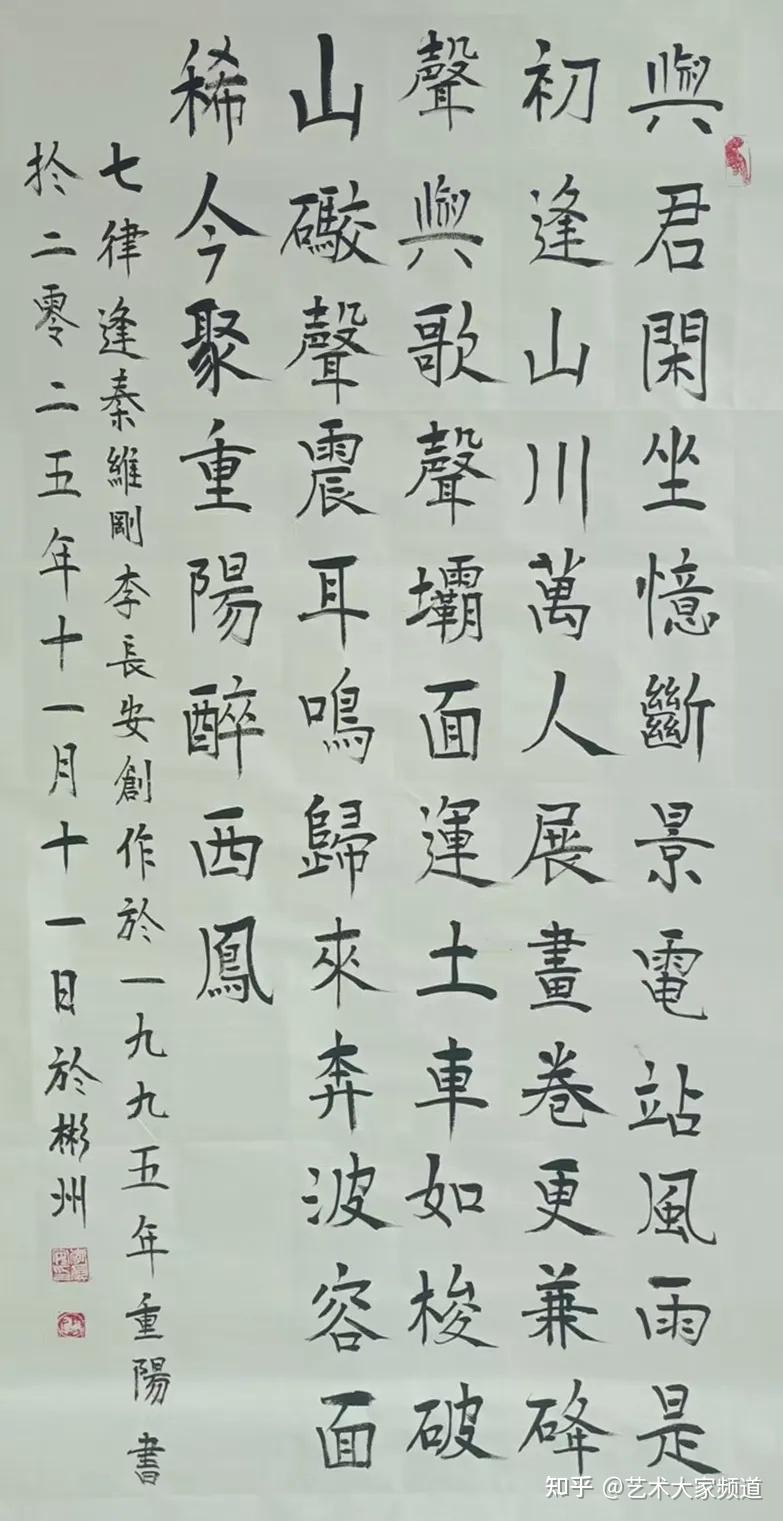 與君閑坐憶斷景電站風雨是
初逢山川萬人展畫卷更兼
聲與歌聲壩面運土車如梭破
山礮聲震耳鳴歸來奔波容面
稀今聚重陽醉西鳳
七律逢秦維剛李長安創作於一九九五年重陽書
扵二零二五年十一月十一日於彬州
知乎 @艺术大家频道